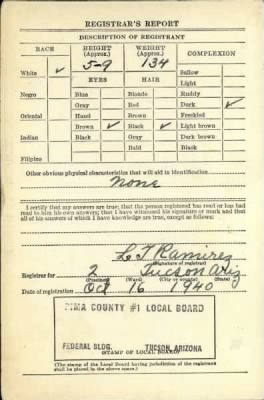 REGISTRAR'S REPORT
DESCRIPTION OF REGISTRANT
RACE HEIGHT (Approx.) WEIGHT (Approx.) COMPLEXION
5-9 134
White ✓ Sallow
EYES HAIR Light
Negro Blue Blonde Ruddy
Gray Red Dark ✓
Oriental Hazel Brown Freckled
Brown ✓ Black ✓ Light brown
Indian Black Gray Dark brown
Bald Black
Filipino
Other obvious physical characteristics that will aid in identification
None
I certify that my answers are true; that the person registered has read or has had
read to him his own answers; that I have witnessed his signature or mark and that
all of his answers of which I have knowledge are true, except as follows:
L T Ramirez
(Signature of registrar)
Registrar for 2 Tucson Ariz
(Precinct) (Ward) (City or county) (State)
Date of registration Oct 16 1940
PIMA COUNTY #1 LOCAL BOARD
FEDERAL BLDG. TUCSON, ARIZONA
(STAMP OF LOCAL BOARD)
(The stamp of the Local Board having jurisdiction of the registrant
shall be placed in the above space.)